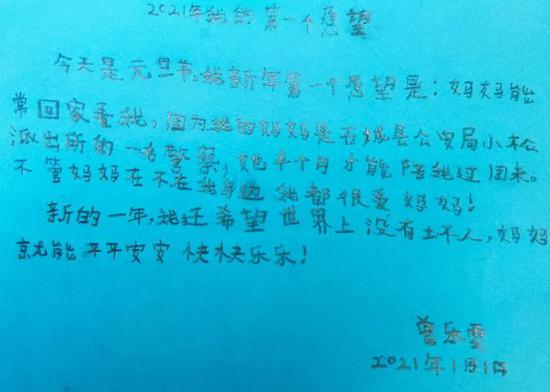 2021年我的第一个愿望
今天是元旦节,我新年第一个愿望是:妈妈能
常回家看我,因为我的妈妈是石城县公安局小松
派出所的一名警察,她半个月才能陪我过周末。
不管妈妈在不在我身边我都很爱妈妈!
新的一年,我还希望世界上没有坏人,妈妈
就能平平安安快快乐乐!
曾乐雯
2021年1月1日